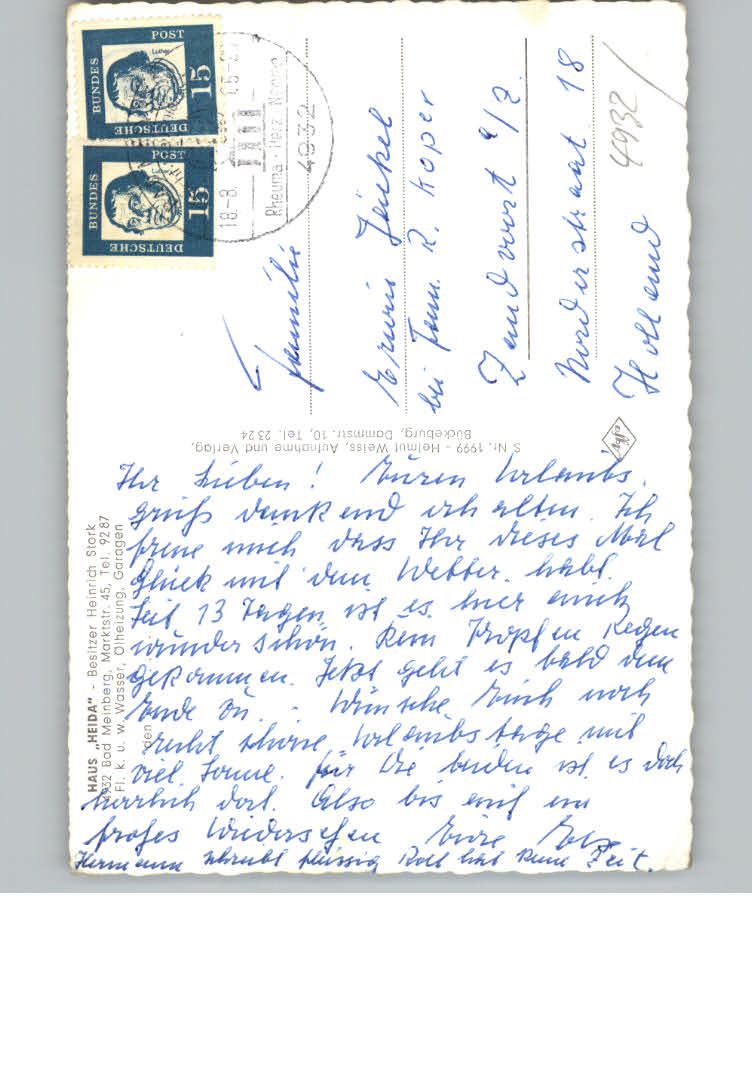 DEUTSCHE
BUNDES
POST
15
Luther
DEUTSCHE
BUNDES
POST
15
18.-8.
Rheuma · Herz · Nerven
4932
Familie
Erwin Jenkel
bei Fam. R. Koper
Zandvoort a/Z.
Norderstraat 18
Holland
4932
S Nr. 1999 - Helmut Weiss, Aufnahme und Verlag,
Bückeburg, Dammstr. 10, Tel. 2324
HAUS „HEIDA" - Besitzer Heinrich Stork
4932 Bad Meinberg, Marktstr. 45, Tel. 9287
Fl. k. u. w. Wasser, Ölheizung, Garagen
den
Ihr Lieben! Euren Urlaubs-
gruß dankend erhalten. Ich
freue mich dass Ihr dieses Mal
Glück mit dem Wetter habt.
Seit 13 Tagen ist es hier auch
wunderschön. Kein Tropfen Regen
gekommen. Jetzt geht es bald dem
Ende zu. - Wünsche Euch noch
recht schöne Urlaubstage mit
viel Sonne. Für die beiden ist es doch
herrlich dort. Also bis auf ein
frohes Wiedersehen Eure
Hermann schreibt flüssig Rolf hat keine Zeit.